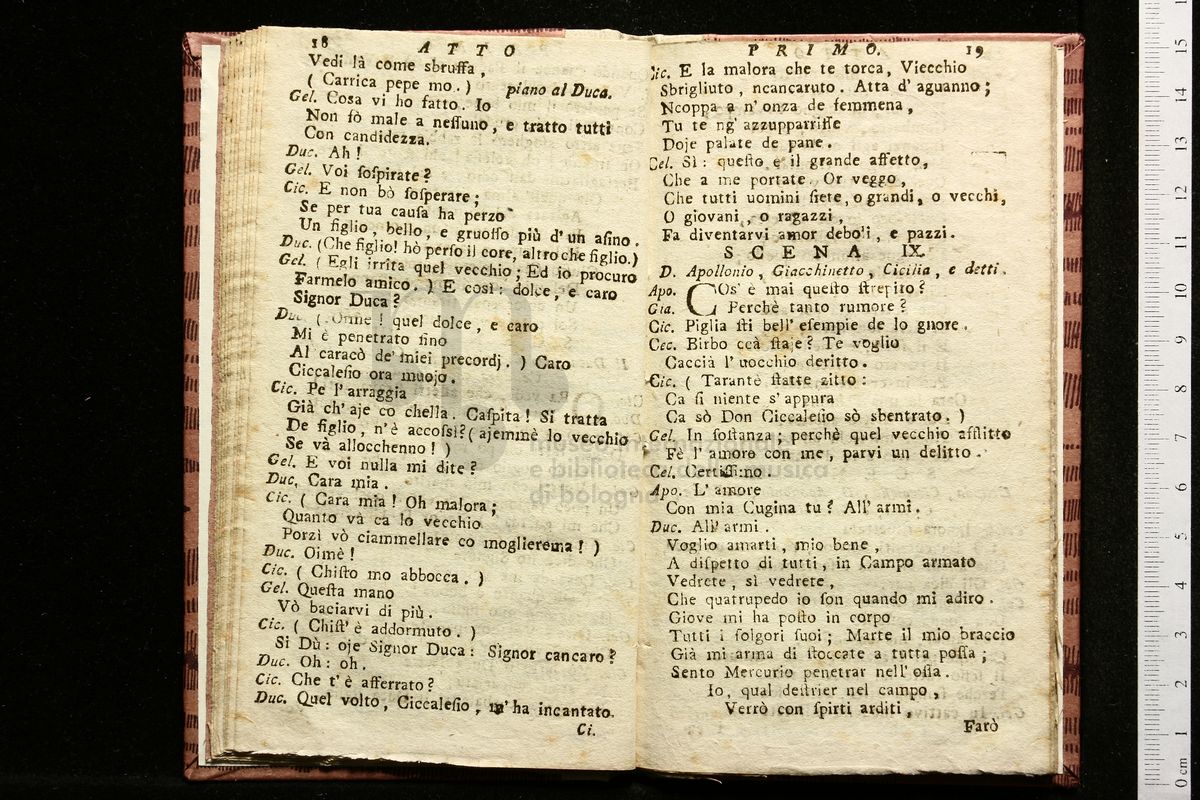 18 ATTO
Vedi là come sbruffa,
( Carrica pepe mo. ) piano al Duca.
Gel. Cosa vi ho fatto. Io
Non fò male a neſſuno, e tratto tutti
Con candidezza.
Duc. Ah!
Gel. Voi ſoſpirate?
Cic. E non bò ſoſperare;
Se per tua cauſa ha perzo
Un figlio, bello, e gruoſſo più d'un aſino.
Duc. (Che figlio! hò perſo il core, altro che figlio.)
Gel. ( Egli irrita quel vecchio; Ed io procuro
Farmelo amico. ) E così: dolce, e caro
Signor Duca?
Duc. ( Oimè! quel dolce, e caro
Mi è penetrato ſino
Al caracò de' miei precordj. ) Caro
Ciccaleſio ora muojo.
Cic. Pe l'arraggia
Già ch'aje co chella. Caſpita! Si tratta
De figlio, n'è accoſsì? ( ajemmè lo vecchio
Se và allocchenno! )
Gel. E voi nulla mi dite?
Duc. Cara mia.
Cic. ( Cara mia! Oh malora;
Quanto và ca lo vecchio
Porzì vò ciammellare co moglierema! )
Duc. Oimè!
Cic. ( Chiſto mo abbocca. )
Gel. Queſta mano
Vò baciarvi di più.
Cic. ( Chiſt' è addormuto. )
Si Dù: oje Signor Duca: Signor cancaro?
Duc. Oh: oh.
Cic. Che t'è afferrato?
Duc. Quel volto, Ciccaleſio, m'ha incantato.
Ci.
PRIMO. 19
Cic. E la malora che te torca, Viecchio
Sbrigliuto, ncancaruto. Atta d'aguanno;
Ncoppa a n'onza de femmena,
Tu te ng'azzupparriſſe
Doje palate de pane.
Cel. Sì: queſto è il grande affetto,
Che a me portate. Or veggo,
Che tutti uomini ſiete, o grandi, o vecchi,
O giovani, o ragazzi,
Fa diventarvi amor deboli, e pazzi.
SCENA IX.
D. Apollonio, Giacchinetto, Cicilia, e detti.
Apo. COs' è mai queſto ſtrepito?
Gia. Perchè tanto rumore?
Cic. Piglia ſti bell' eſempie de lo gnore.
Cec. Birbo ccà ſtaje? Te voglio
Caccià l'uocchio deritto.
Cic. ( Tarantè ſtatte zitto:
Ca ſi niente s'appura
Ca sò Don Ciccaleſio sò sbentrato. )
Gel. In ſoſtanza; perchè quel vecchio afflitto
Fè l'amore con me, parvi un delitto.
Cel. Certiſſimo.
Apo. L'amore
Con mia Cugina tu? All' armi.
Duc. All' armi.
Voglio amarti, mio bene,
A diſpetto di tutti, in Campo armato
Vedrete, sì vedrete,
Che quatrupedo io ſon quando mi adiro.
Giove mi ha poſto in corpo
Tutti i folgori ſuoi; Marte il mio braccio
Già mi arma di ſtoccate a tutta poſſa;
Sento Mercurio penetrar nell' oſſa.
Io, qual deſtrier nel campo,
Verrò con ſpirti arditi,
Farò
museo internazionale
e biblioteca della musica
di bologna
0 cm 1 2 3 4 5 6 7 8 9 10 11 12 13 14 15